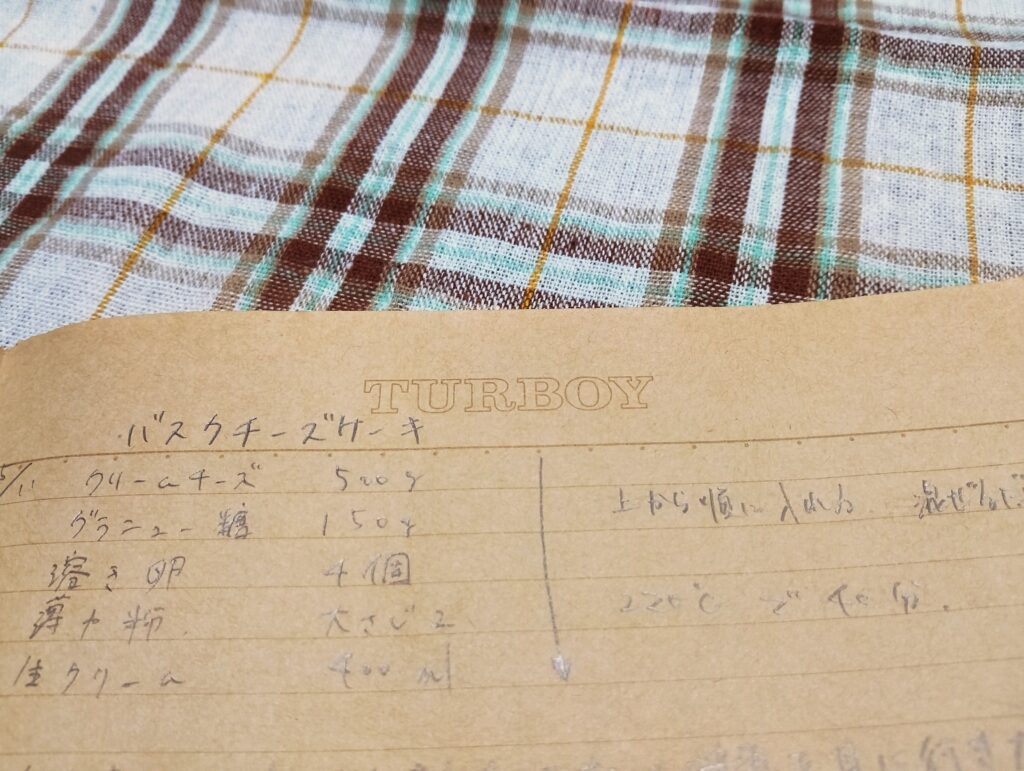 TURBOY
バスクチーズケーキ
5/11 クリームチーズ 500g
グラニュー糖 150g
溶き卵 4個
薄力粉 大さじ2
生クリーム 400ml
上から順に入れる 混ぜ
220℃で40分.